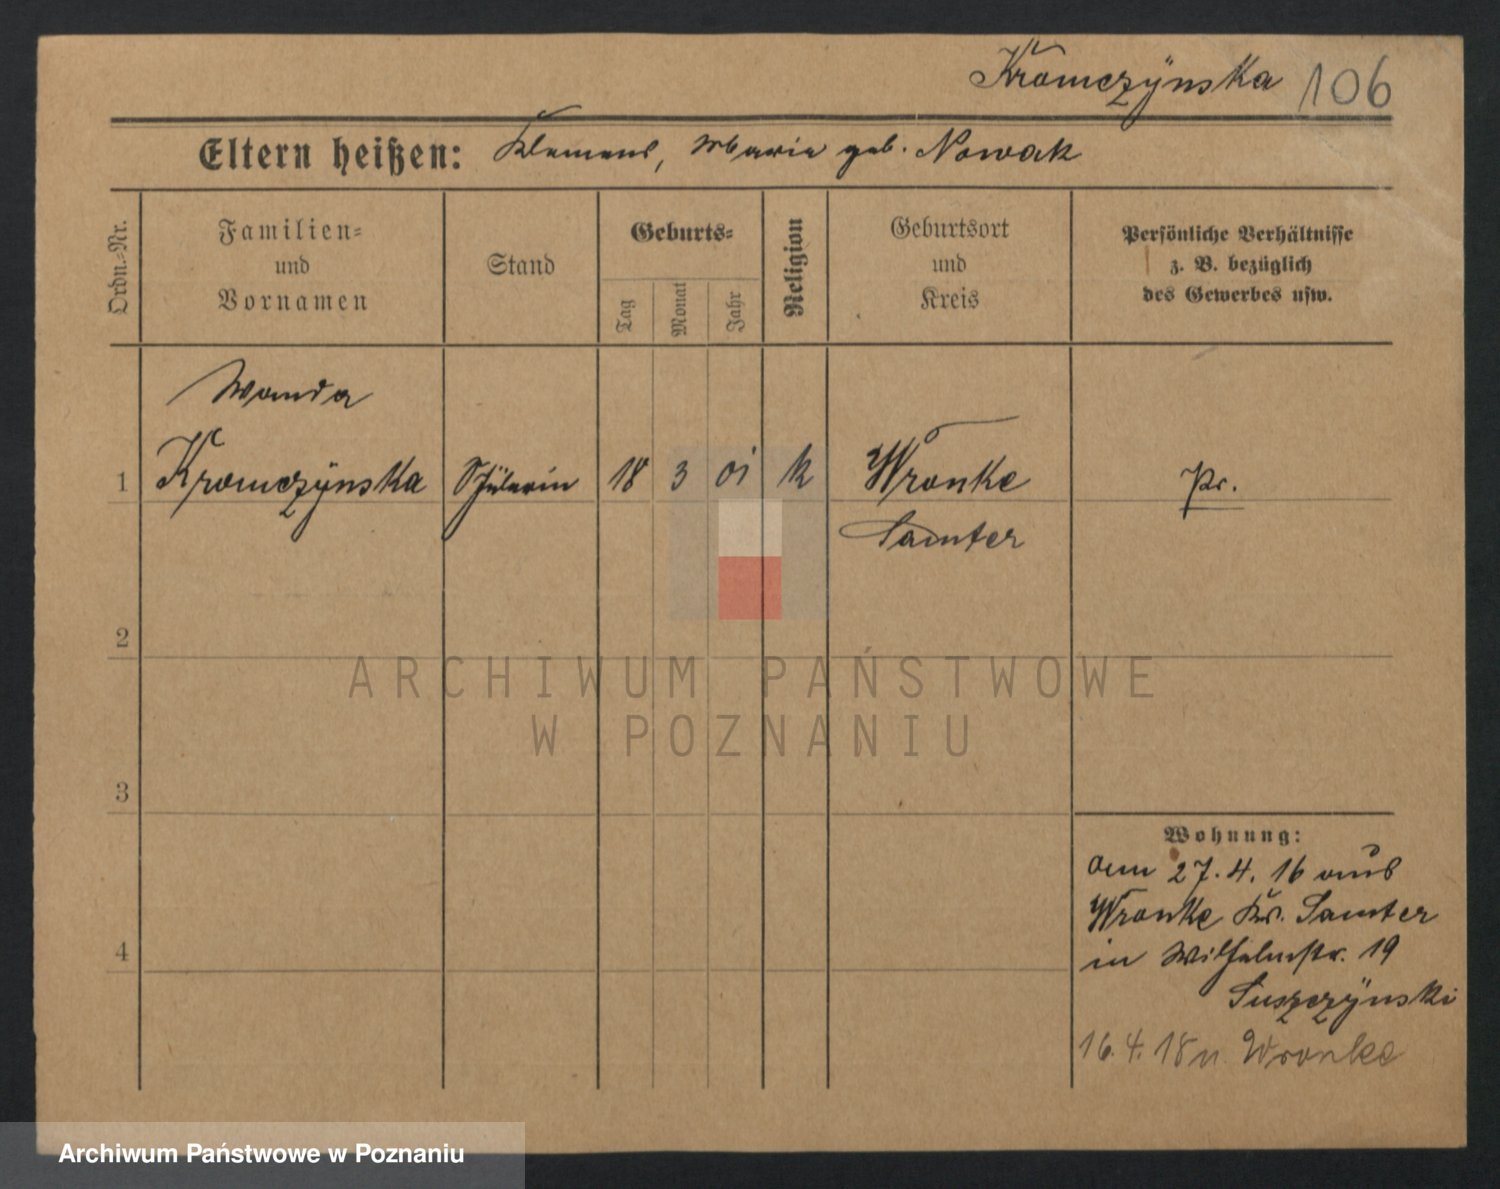 Kromczÿnska 106
Eltern heißen: Klemens, Maria geb. Nowak
Ordn.=Nr.
Familien=
und
Vornamen
Stand
Geburts=
Tag
Monat
Jahr
Religion
Geburtsort
und
Kreis
Persönliche Verhältnisse
z. B. bezüglich
des Gewerbes usw.
Wanda
1 Kromczÿnska Schülerin 18 3 01 k Wronke Pr.
Samter
2
ARCHIWUM PAŃSTWOWE
W POZNANIU
3
Wohnung:
am 27. 4. 16 aus
Wronke Kr. Samter
4
in Wilhelmstr. 19
Suszczÿnski
16. 4. 18 n. Wronke
Archiwum Państwowe w Poznaniu